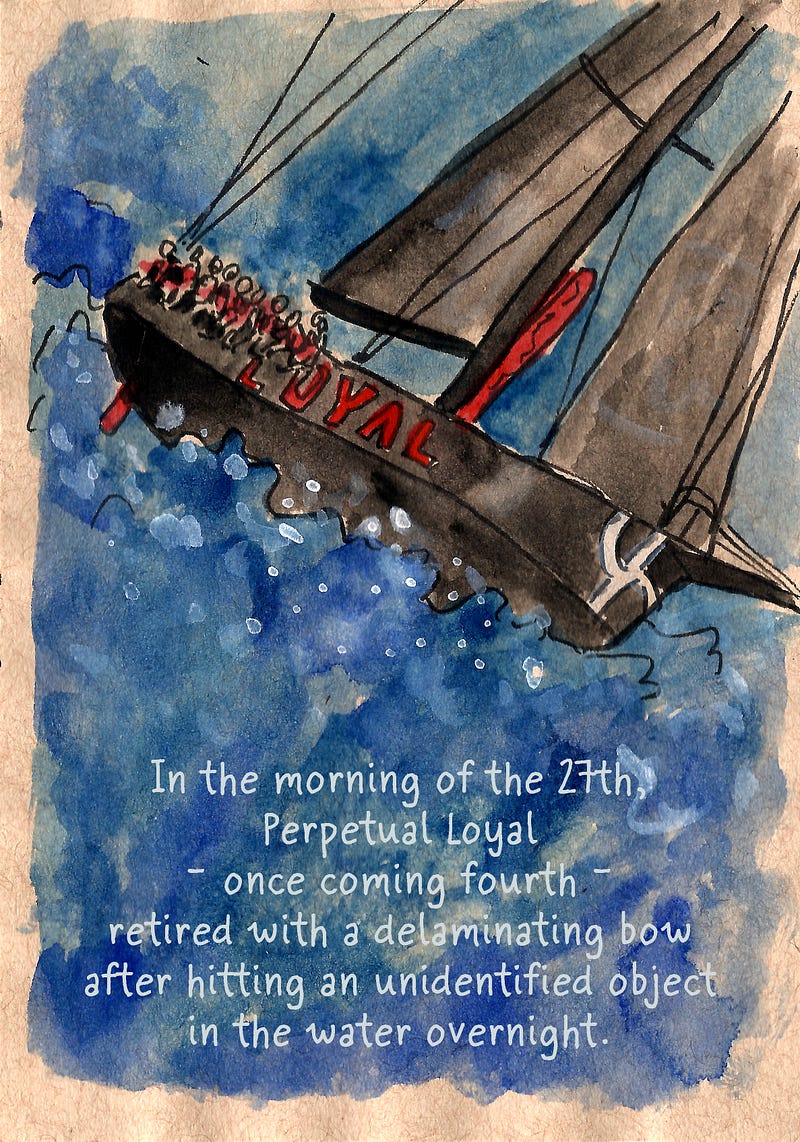 LOYAL
In the morning of the 27th,
Perpetual Loyal
- once coming fourth -
retired with a delaminating bow
after hitting an unidentified object
in the water overnight.